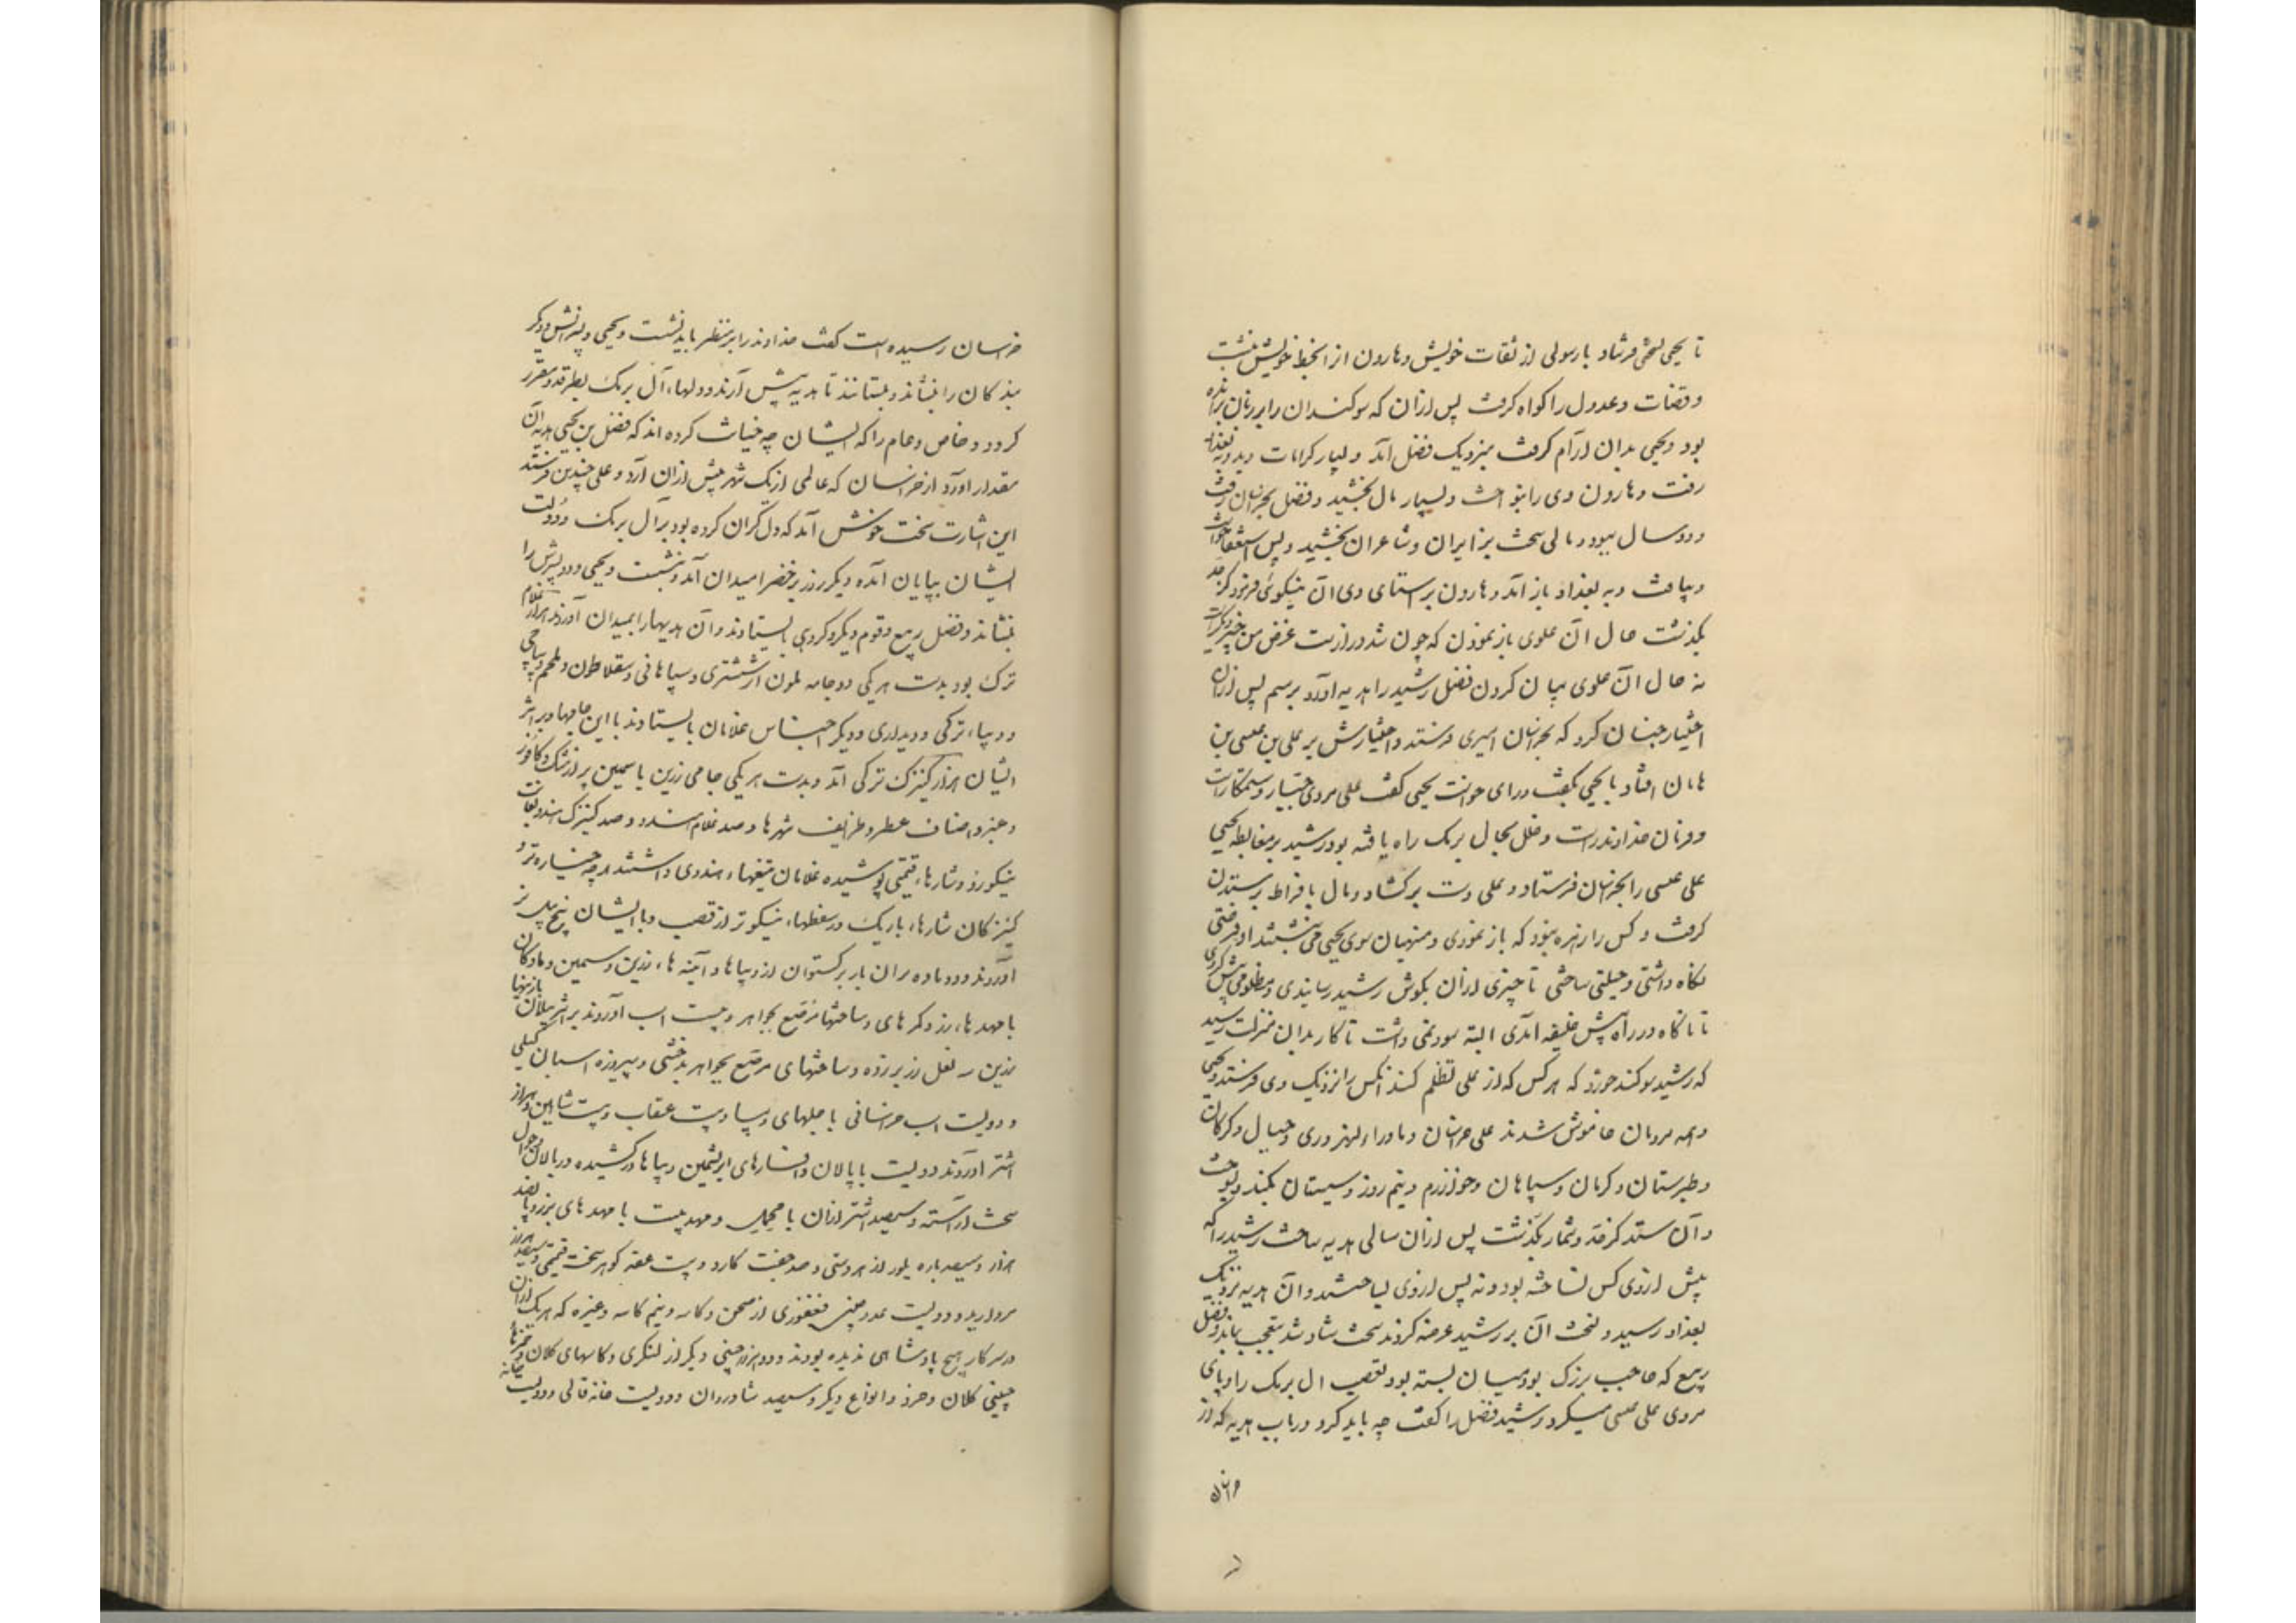 تا یحیی نسختی فرستاد با رسولی از ثقات خویش و هارون از آن بخط خویش نبشت
و قضات و عدول را کواه کرفت پس ازان که سوکندان را بر زبان برانده
بود و یحیی بدان آرام کرفت بنزدیک فضل آمد و بسیار کرامات دید و به بغداد
رفت و هارون وی را بنواخت و بسیار مال بخشید و فضل بخراسان رفت
و دو سال ببود و مالی سخت بزایران و شاعران بخشید و پس استعفا خواست
و بیافت و به بغداد باز آمد و هارون براستای وی آن نیکوئی فرمود کز حد
بکذشت حال آن علوی باز نمودن که چون شد دراز است غرض من چیز دیکر است
نه حال آن علوی بیان کردن فضل رشید را هدیه آورد برسم پس ازان
اختیار چنان کرد که بخراسان امیری فرستد و اختیارش بر علی بن عیسی بن
هامان افتاد با یحیی بکفت و رای خواست یحیی کفت علی مردی جبار و ستمکار است
و فرمان خداوند راست و خلل بحال برمک راه یافته بود رشید بر مغایظه یحیی
علی عیسی را بخراسان فرستاد و علی دست برکشاد و مال بافراط برستدن
کرفت و کس را زهره نبود که باز نمودی و منهیان سوی یحیی می نبشتند او فرصتی
نکاه داشتی و حیلتی ساختی تا چیزی ازان بکوش رشید رسانیدی و مظلومی پیش کردی
تا ناکاه در راه پیش خلیفه آمدی البته سود نمی داشت تا کار بدان منزلت رسید
که رشید سوکند خورد که هر کس که از علی تظلم کند آنکس را نزدیک وی فرستد و یحیی
و همه مردمان خاموش شدند علی خراسان و ماوراء النهر و ری و جبال و کرکان
و طبرستان و کرمان و سپاهان و خوارزم و نیم روز و سیستان بکند و بسوخت
و آن ستد کز حد و شمار بکذشت پس ازان مالی هدیه ساخت رشید را که
پیش از وی کس نساخته بود و نه پس از وی بساختند و آن هدیه نزدیک
بغداد رسید و نسخت آن بر رشید عرضه کردند سخت شاد شد بتعجب بماند و فضل
ربیع که حاجب بزرک بود میان بسته بود تعصب آل برمک را و پای
مردی علی عیسی میکرد رشید فضل را کفت چه باید کرد در باب هدیه که از
خراسان رسیده است کفت خداوند را بر منظر باید نشست و یحیی و پسرانش و دیکر
بندکان را بنشاند و بستانند تا هدیه پیش آرند و دلهاء آل برمک بطرقد و مقرر
کردد و خاص و عام را که ایشان چه خیانت کرده اند که فضل بن یحیی هدیه آن
مقدار آورد از خراسان که عاملی از یک شهر بیش ازان آرد و علی چندین فرستد
این اشارت سخت خوش آمد که دل کران کرده بود بر آل برمک و دولت
ایشان بپایان آمده دیکر روز بر خضراء میدان آمد و بنشست و یحیی و دو پسرش را
بنشاند و فضل ربیع و قوم دیکر و کروهی بایستادند و آن هدیها را بمیدان آوردند هزار غلام
ترک بود بدست هر یکی دو جامه ملون از ششتری و سپاهانی و سقلاطون و ملحم دیباجی
و دیباء ترکی و دیداری و دیکر اجناس غلامان بایستادند با این جامها و بر اثر
ایشان هزار کنیزک ترکی آمد و بدست هر یکی جامی زرین یا سیمین پر از مشک و کافور
و عنبر و اصناف عطر و طرایف شهرها و صد غلام هندو و صد کنیزک هندو بغایت
نیکورو و شارهاء قیمتی پوشیده غلامان تیغهاء هندوی داشتند هر چه خیاره تر و
کنیزکان شارهاء باریک در سفطهاء نیکوتر از قصب و با ایشان پنج پیل نر
آوردند و دو ماده نران با برکستوان از دیبا و آیینه هاء زرین و سیمین و مادکان
با مهدهاء زر و کمرهای و ساختها مرصع بجواهر و بیست اسب آوردند بر اثر پیلان با زینها
زرین نعل زر برزده و ساختهای مرصع بجواهر بدخشی و پیروزه اسبان کیلی
و دویست اسب خراسانی با جلهای دیبا و بیست عقاب و بیست شاهین و هزار
اشتر آوردند دویست با پالان و افسارهای ابریشمین دیباها درکشیده در پالان و جوال
سخت آراسته و سیصد اشتر ازان با محمل و مهد بیست با مهدهای بزر و پانصد
هزار و سیصد پاره بلور از هر دستی و صد جفت کاو و بیست عقد کوهر سخت قیمتی و سیصد هزار
مروارید و دویست عدد چینی فغفوری از صحن و کاسه و نیم کاسه و غیره که هر یک ازان
در سرکار هیچ پادشاهی ندیده بودند و دو هزار چینی دیکر از لنکری و کاسهای کلان و خمرهاء
چینی کلان و خرد و انواع دیکر و سیصد شادروان و دویست خانه قالی و دویست خانه